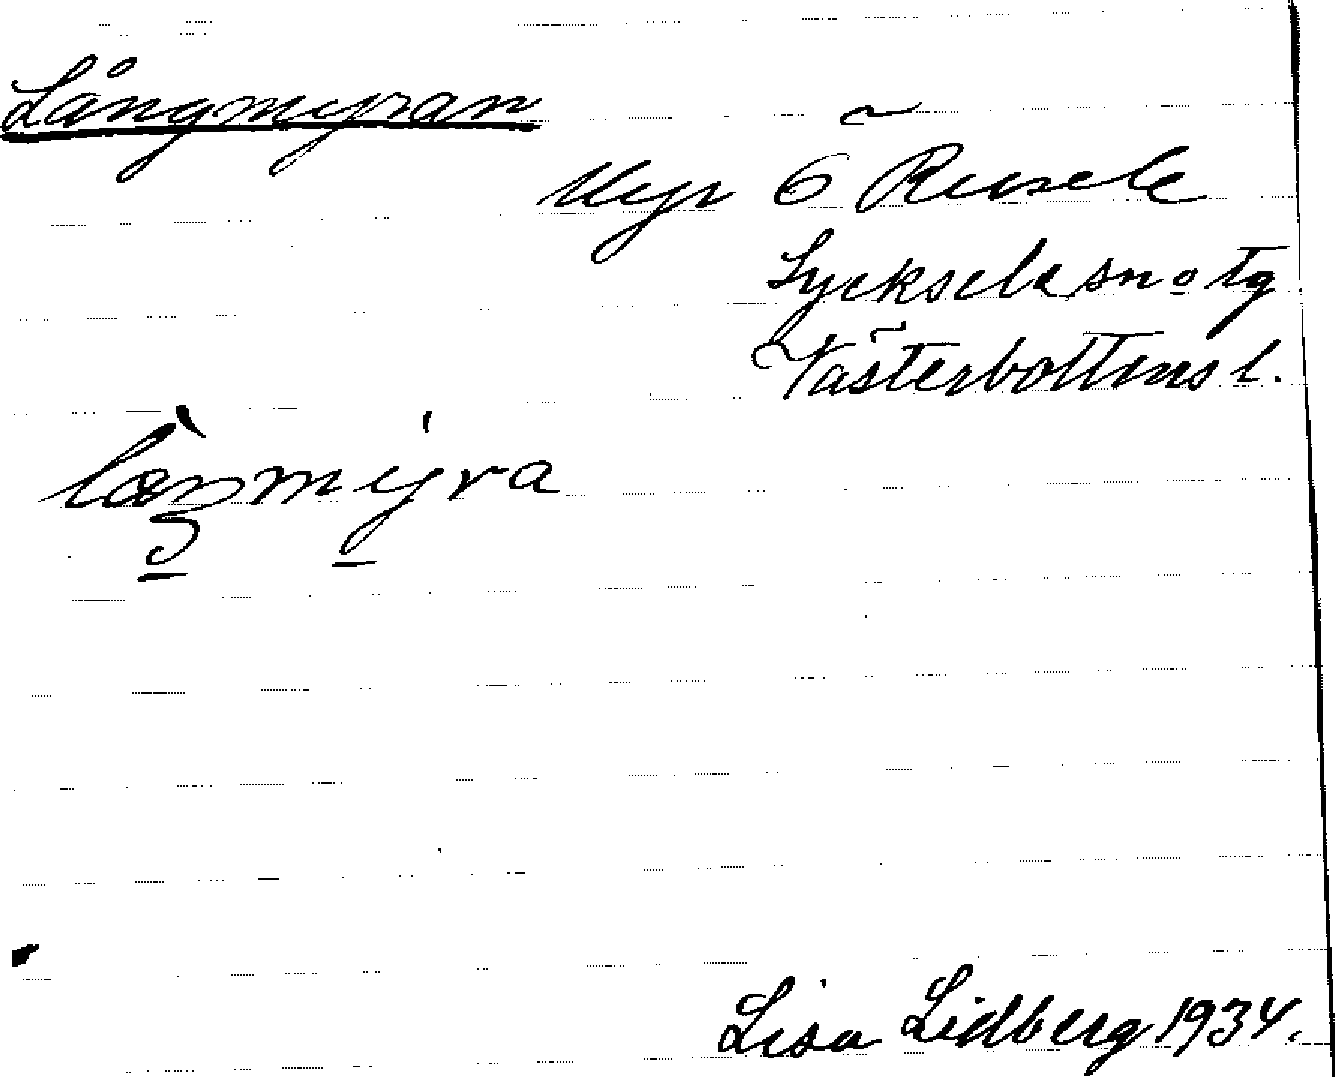 Långmyran
Myr Ö Rusele
Lycksele sn o tg
Västerbottens l.
Lisa Lidberg 1934.